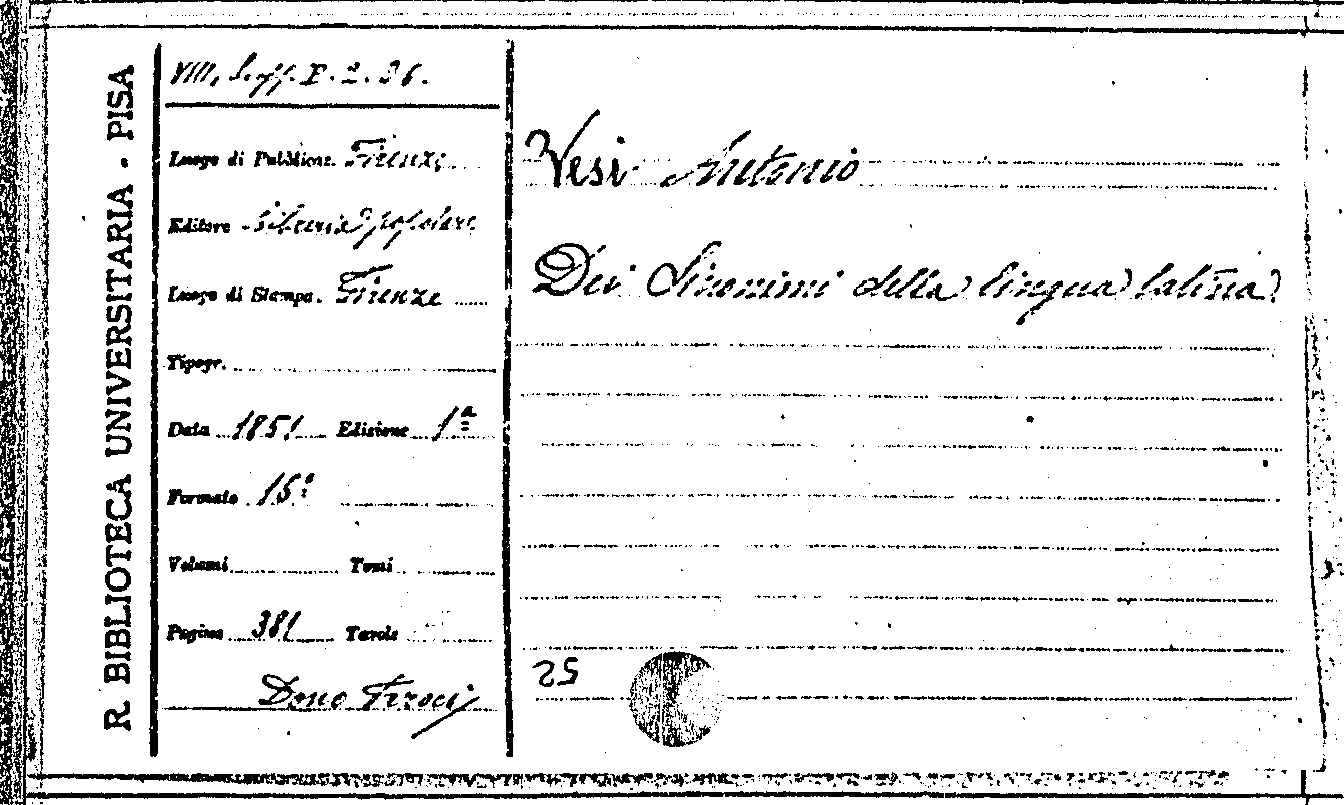 R BIBLIOTECA UNIVERSITARIA - PISA
VIII, Soff. E. 2. 36.
Luogo di Pubblicaz. Firenze
Editore Libreria popolare
Luogo di Stampa. Firenze
Tipogr.
Data 1851 Edizione 1ª
Formato 16º
Volumi Tomi
Pagine 381 Tavole
Dono Feroci
Vesi Antonio
Dei Sinonimi della lingua latina
25